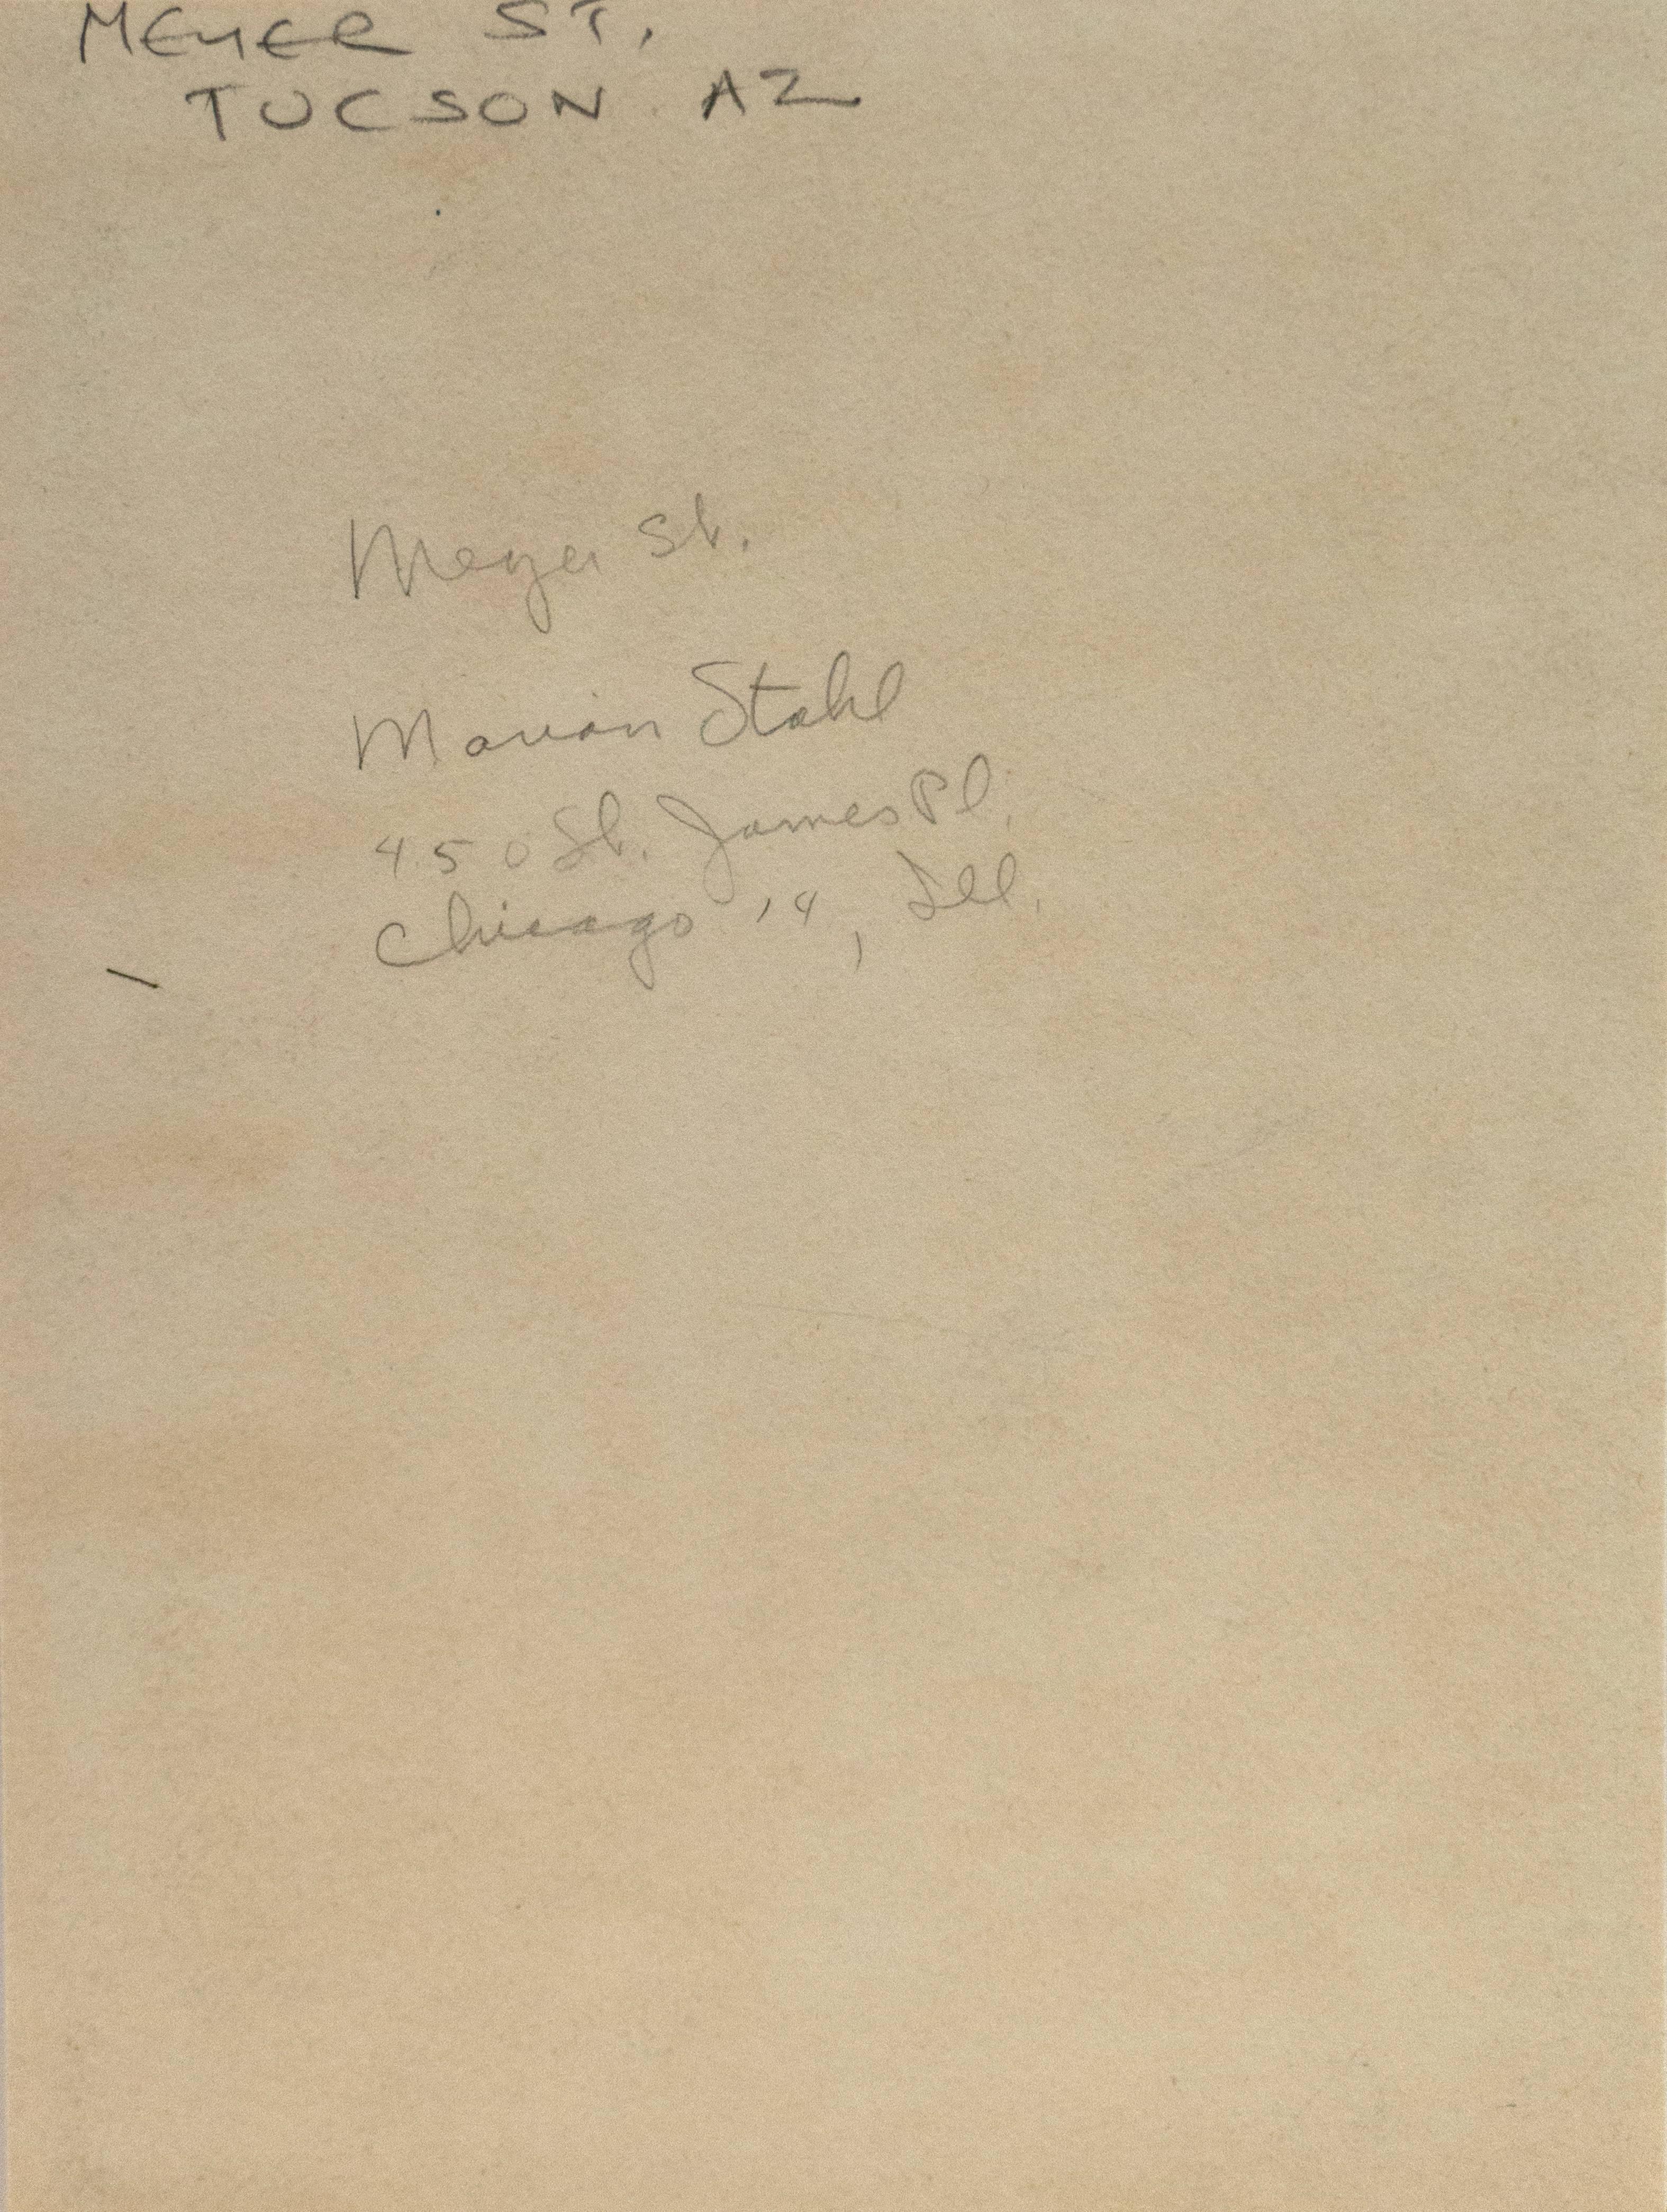 MEYER ST.
TUCSON AZ
Meyer St.
Marian Stahl
450 St. James Pl.
Chicago 14, Ill.